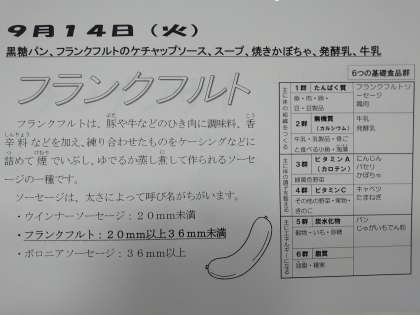 9月14日（火）
黒糖パン、フランクフルトのケチャップソース、スープ、焼きかぼちゃ、発酵乳、牛乳
フランクフルト
フランクフルトは、豚や牛などのひき肉に調味料、香
辛料などを加え、練り合わせたものをケーシングなどに
詰めて煙でいぶし、ゆでるか蒸し煮して作られるソーセ
ージの一種です。
ソーセージは、太さによって呼び名がちがいます。
・ウインナーソーセージ：20mm未満
・フランクフルト：20mm以上36mm未満
・ボロニアソーセージ：36mm以上
6つの基礎食品群
1群 たんぱく質
魚・肉・卵・
豆・豆製品
フランクフルトソ
ーセージ
鶏肉
2群 無機質
（カルシウム）
牛乳・乳製品・骨ご
と食べる小魚・海藻
牛乳
発酵乳
3群 ビタミンA
（カロテン）
緑黄色野菜
にんじん
パセリ
かぼちゃ
4群 ビタミンC
その他の野菜・果物・
きのこ
キャベツ
たまねぎ
5群 炭水化物
穀物・いも・砂糖
パン
じゃがいもでん粉
6群 脂質
油脂・種実